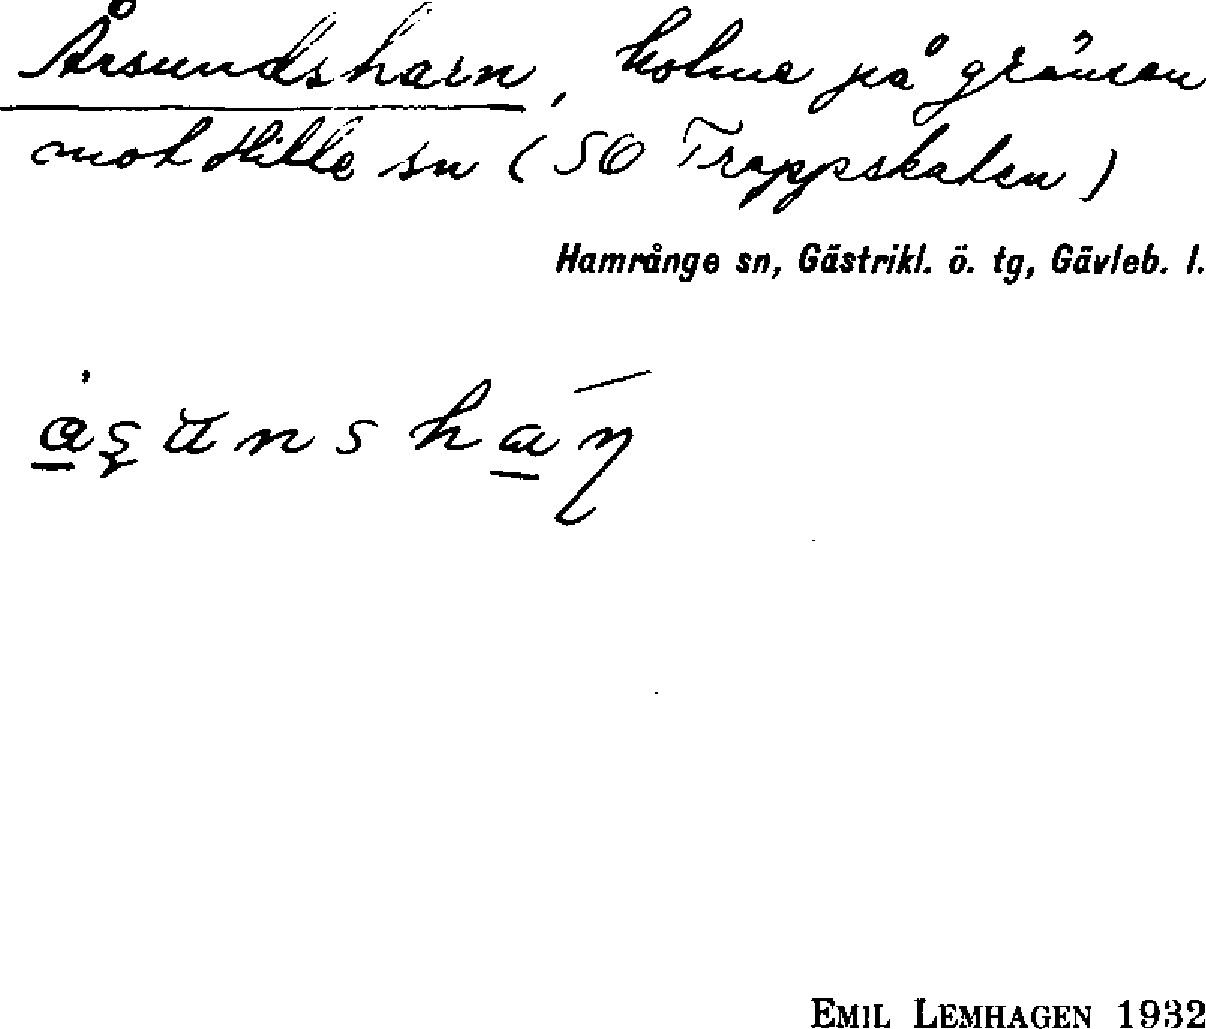 Årsundsharn, holme på gränsen
mot Hille sn (SO Trappskaten)
Hamrånge sn, Gästrikl. ö. tg, Gävleb. l.
EMIL LEMHAGEN 1932